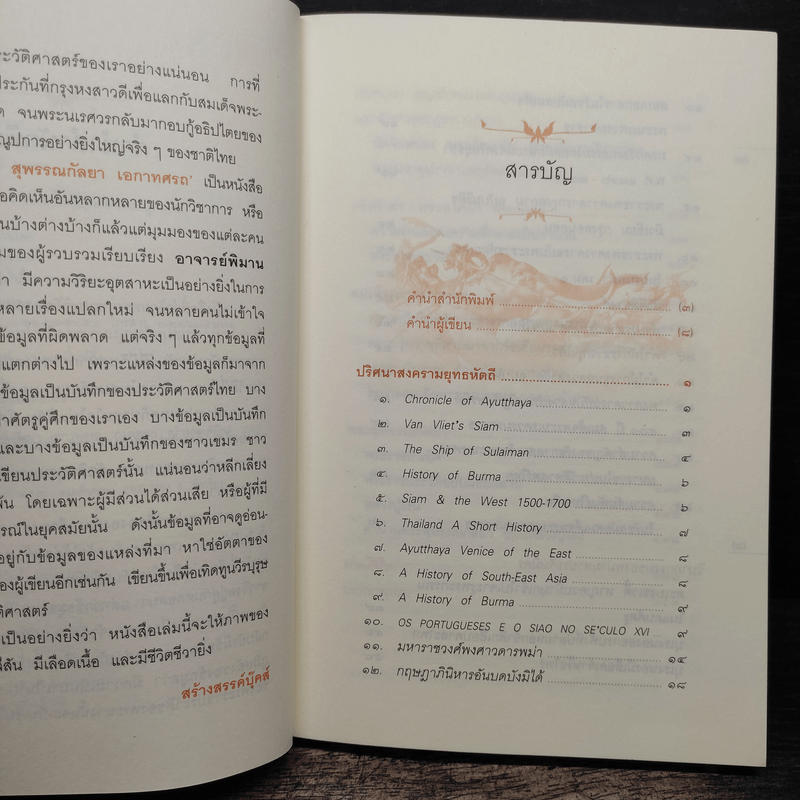 ระวัติศาสตร์ของเราอย่างแน่นอน การที่
ประกันที่กรุงหงสาวดีเพื่อแลกกับสมเด็จพระ-
จนพระนเรศวรกลับมากอบกู้อธิปไตยของ
ณูปการอย่างยิ่งใหญ่จริง ๆ ของชาติไทย
สุพรรณกัลยา เอกาทศรถ' เป็นหนังสือ
อคิดเห็นอันหลากหลายของนักวิชาการ หรือ
นบ้างต่างบ้างก็แล้วแต่มุมมองของแต่ละคน
มของผู้รวบรวมเรียบเรียง อาจารย์พิมาน
มีความวิริยะอุตสาหะเป็นอย่างยิ่งในการ
หลายเรื่องแปลกใหม่ จนหลายคนไม่เข้าใจ
ข้อมูลที่ผิดพลาด แต่จริง ๆ แล้วทุกข้อมูลที่
แตกต่างไป เพราะแหล่งของข้อมูลก็มาจาก
ข้อมูลเป็นบันทึกของประวัติศาสตร์ไทย บาง
าศัตรูคู่ศึกของเราเอง บางข้อมูลเป็นบันทึก
และบางข้อมูลเป็นบันทึกของชาวเขมร ชาว
เขียนประวัติศาสตร์นั้น แน่นอนว่าหลีกเลี่ยง
พัน โดยเฉพาะผู้มีส่วนได้ส่วนเสีย หรือผู้ที่มี
รณ์ในยุคสมัยนั้น ดังนั้นข้อมูลที่อาจดูอ่อน-
อยู่กับข้อมูลของแหล่งที่มา หาใช่อัตตาของ
องผู้เขียนอีกเช่นกัน เขียนขึ้นเพื่อเทิดทูนวีรบุรุษ
ติศาสตร์
เป็นอย่างยิ่งว่า หนังสือเล่มนี้จะให้ภาพของ
สีสัน มีเลือดเนื้อ และมีชีวิตชีวายิ่ง
สร้างสรรค์บุ๊คส์
สารบัญ
คำนำสำนักพิมพ์ (๓)
คำนำผู้เขียน (๘)
ปริศนาสงครามยุทธหัตถี ๑
๑. Chronicle of Ayutthaya ๑
๒. Van Vliet's Siam ๓
๓. The Ship of Sulaiman ๔
๔. History of Burma ๖
๕. Siam & the West 1500-1700 ๖
๖. Thailand A Short History ๗
๗. Ayutthaya Venice of the East ๘
๘. A History of South-East Asia ๘
๙. A History of Burma ๙
๑๐. OS PORTUGUESES E O SIAO NO SE'CULO XVI ๙
๑๑. มหาราชวงศ์พงศาวดารพม่า ๑๔
๑๒. กฤษฎาภินิหารอันบดบังมิได้ ๑๘